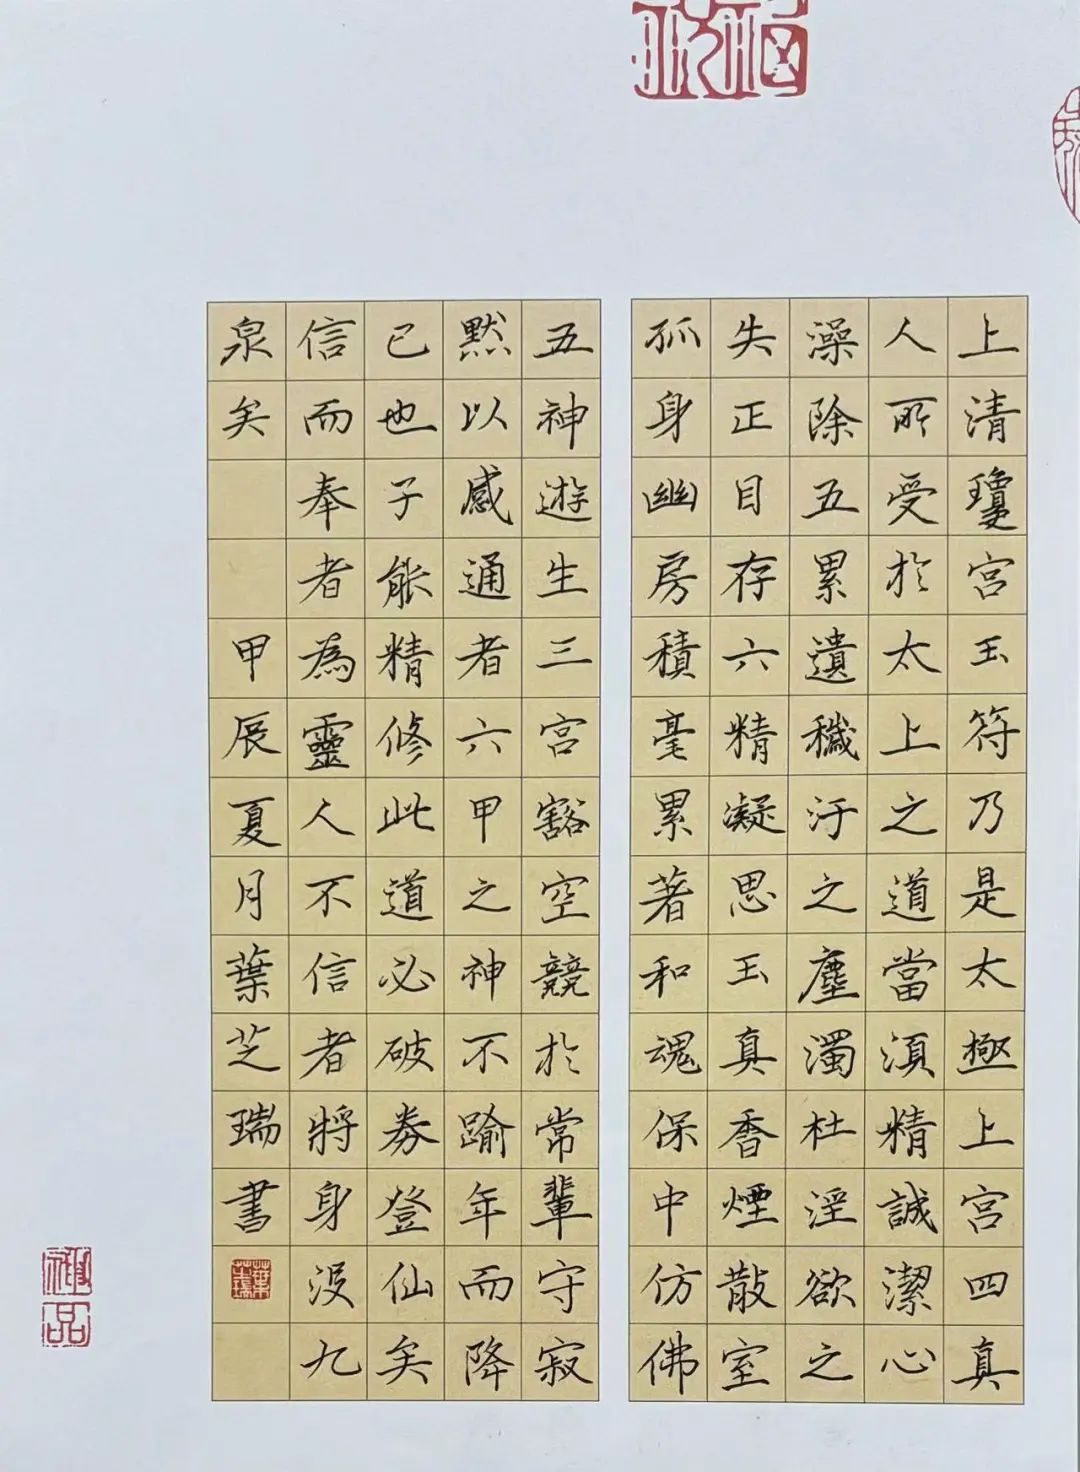 上清瓊宮玉符乃是太極上宮四真
人所受於太上之道當須精誠潔心
澡除五累遺穢汙之塵濁杜淫欲之
失正目存六精凝思玉真香煙散室
孤身幽房積毫累著和魂保中仿佛
五神遊生三宮豁空競於常輩守寂
默以感通者六甲之神不踰年而降
已也子能精修此道必破券登仙矣
信而奉者為靈人不信者將身沒九
泉矣 甲辰夏月葉芝瑞書